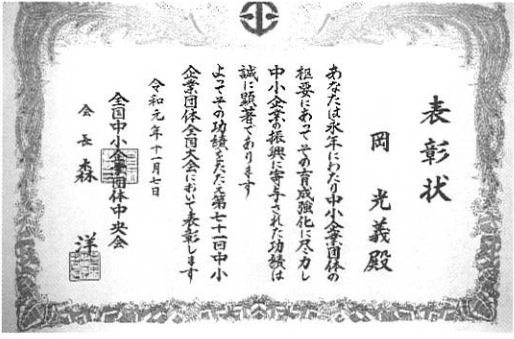 表彰状
岡 光義殿
あなたは永年にわたり中小企業団体の
枢要にあってその育成強化に尽力し
中小企業の振興に寄与された功績は
誠に顕著であります
よってその功績をたたえ第七十一回中小
企業団体全国大会において表彰します
令和元年十一月七日
全国中小企業団体中央会
会長 森 洋